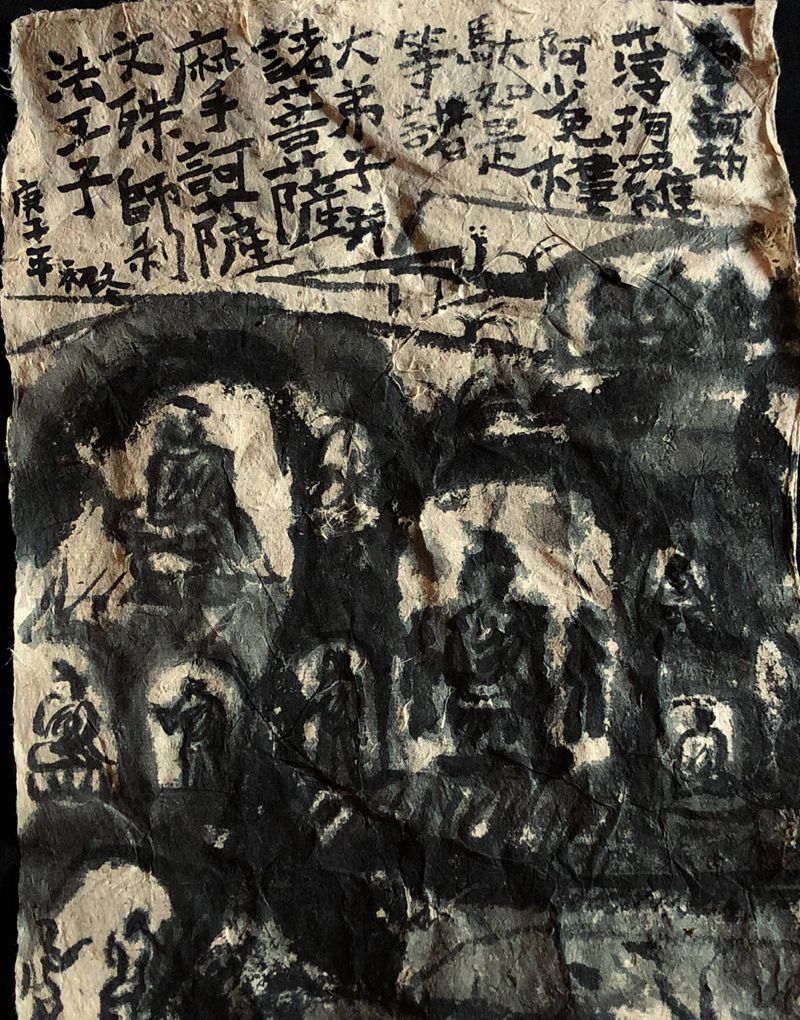 摩訶劫
薄拘羅
阿㝹樓
馱如是
等諸
大弟子并
諸菩薩
摩訶薩
文殊師利
法王子
庚子年
初冬